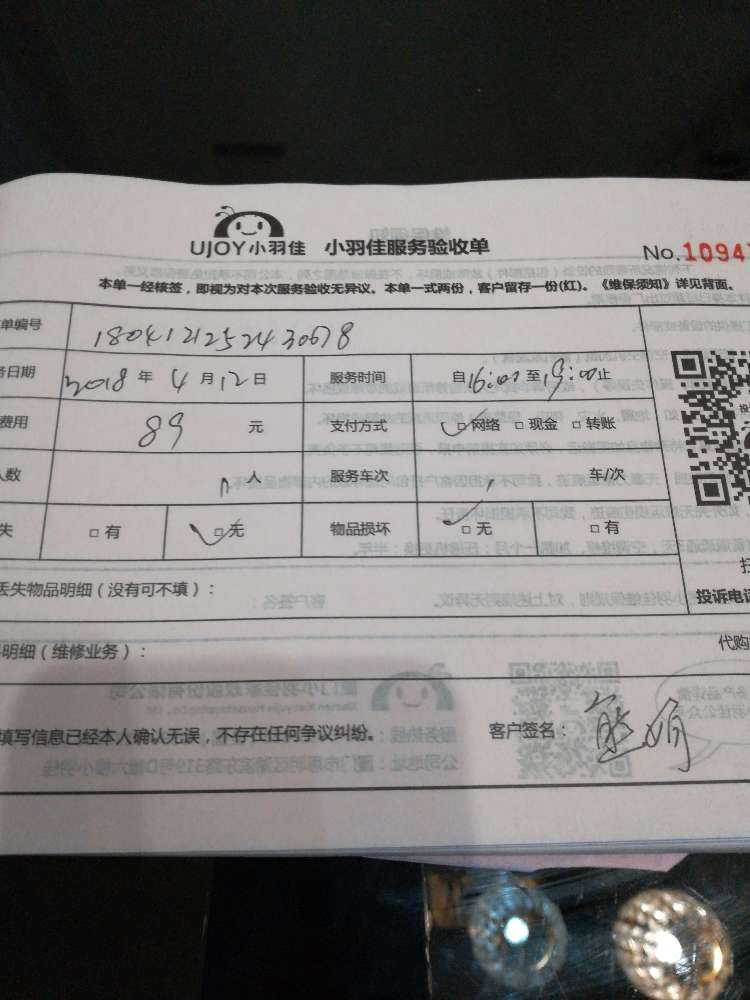 UJOY小羽佳 小羽佳服务验收单
No.1094
本单一经核签，即视为对本次服务验收无异议。本单一式两份，客户留存一份(红)。《维保须知》详见背面。
单编号 1804121252430678
务日期 2018 年 4 月 12 日 服务时间 自16:00至19:00止
费用 89 元 支付方式 □网络 □现金 □转账
人数 人 服务车次 车/次
失 □有 □无 物品损坏 □无 □有
丢失物品明细（没有可不填）：
投诉电话
明细（维修业务）：
代购
填写信息已经本人确认无误，不存在任何争议纠纷。 客户签名： 熊娟